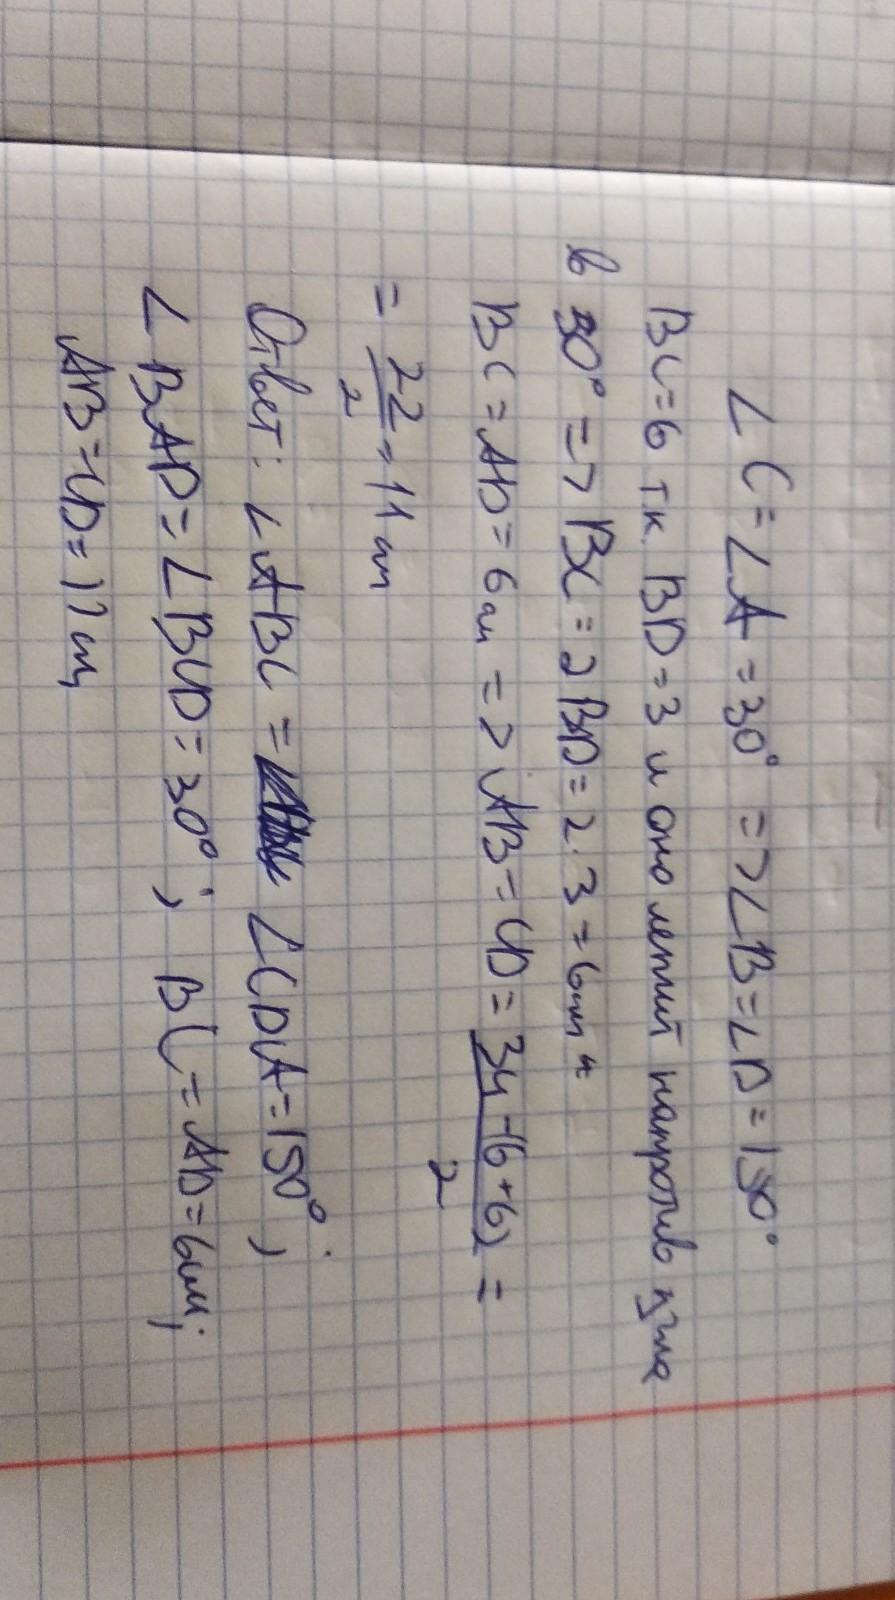 ∠C=∠A=30° => ∠B=∠D=150°
BC=6 т.к. BD=3 и оно лежит напротив угла
в 30° => BC=2BD=2·3=6см
BC=AD=6см => AB=CD= (34-(6+6))/2 =
= 22/2 = 11 см
Ответ: ∠ABC = ∠CDA=150°;
∠BAD=∠BCD=30°; BC=AD=6см;
AB=CD=11см